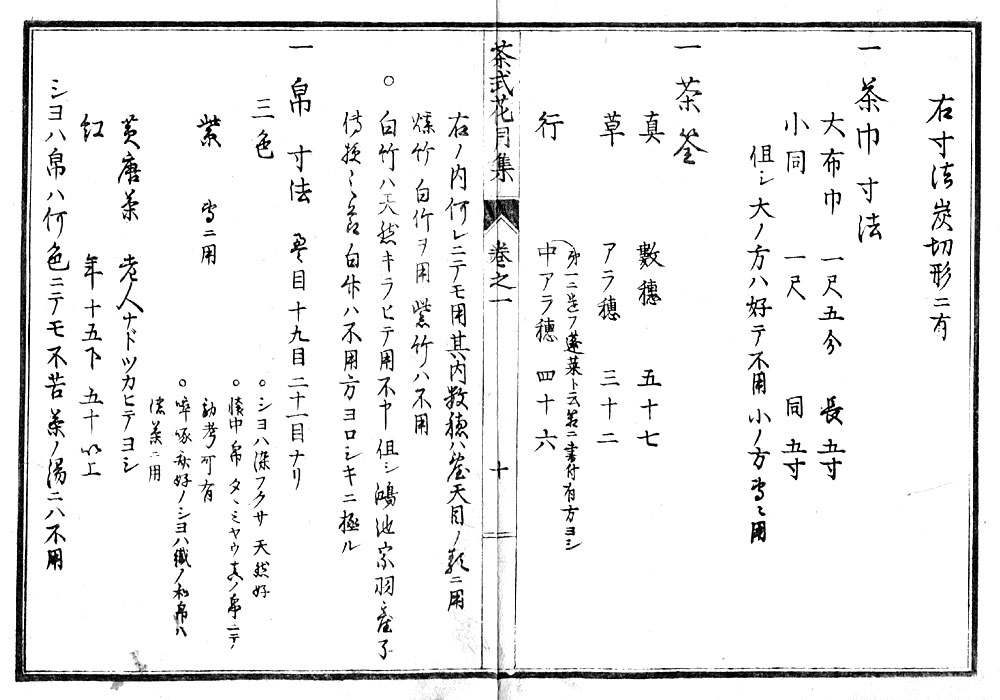 右寸法炭切形ニ有
一 茶巾寸法
大布巾 一尺五分 長五寸
小同 一尺 同五寸
但シ大ノ方ハ好テ不用小ノ方常ニ用
一 茶筌
真 數穗 五十七
草 アラ穗 三十二
行 中アラ穗 四十六
茶式花月集 卷之一 十
右ノ内何レニテモ用其内数穗ハ
煤竹白竹ヲ用紫竹ハ不用
○ 白竹ハ天然キラヒテ用不申但シ鴻池宗羽
白竹ハ不用方ヨロシキニ極ル
一 帛寸法 疊目十九目二十一目ナリ
三色
○ シヨハ染フクサ天然好
○ 懐中帛タヽミヤウ真ノ帛ニテノ
勘考可有
紫 常ニ用
○ 啐啄斎好ノシヨハ織ノ和帛ハ
濃茶ニ用
黄唐茶 老人ナドツカヒテヨシ
紅 年十五下五十以上
シヨハ帛ハ何色ニテモ不苦茶ノ湯ニハ不用